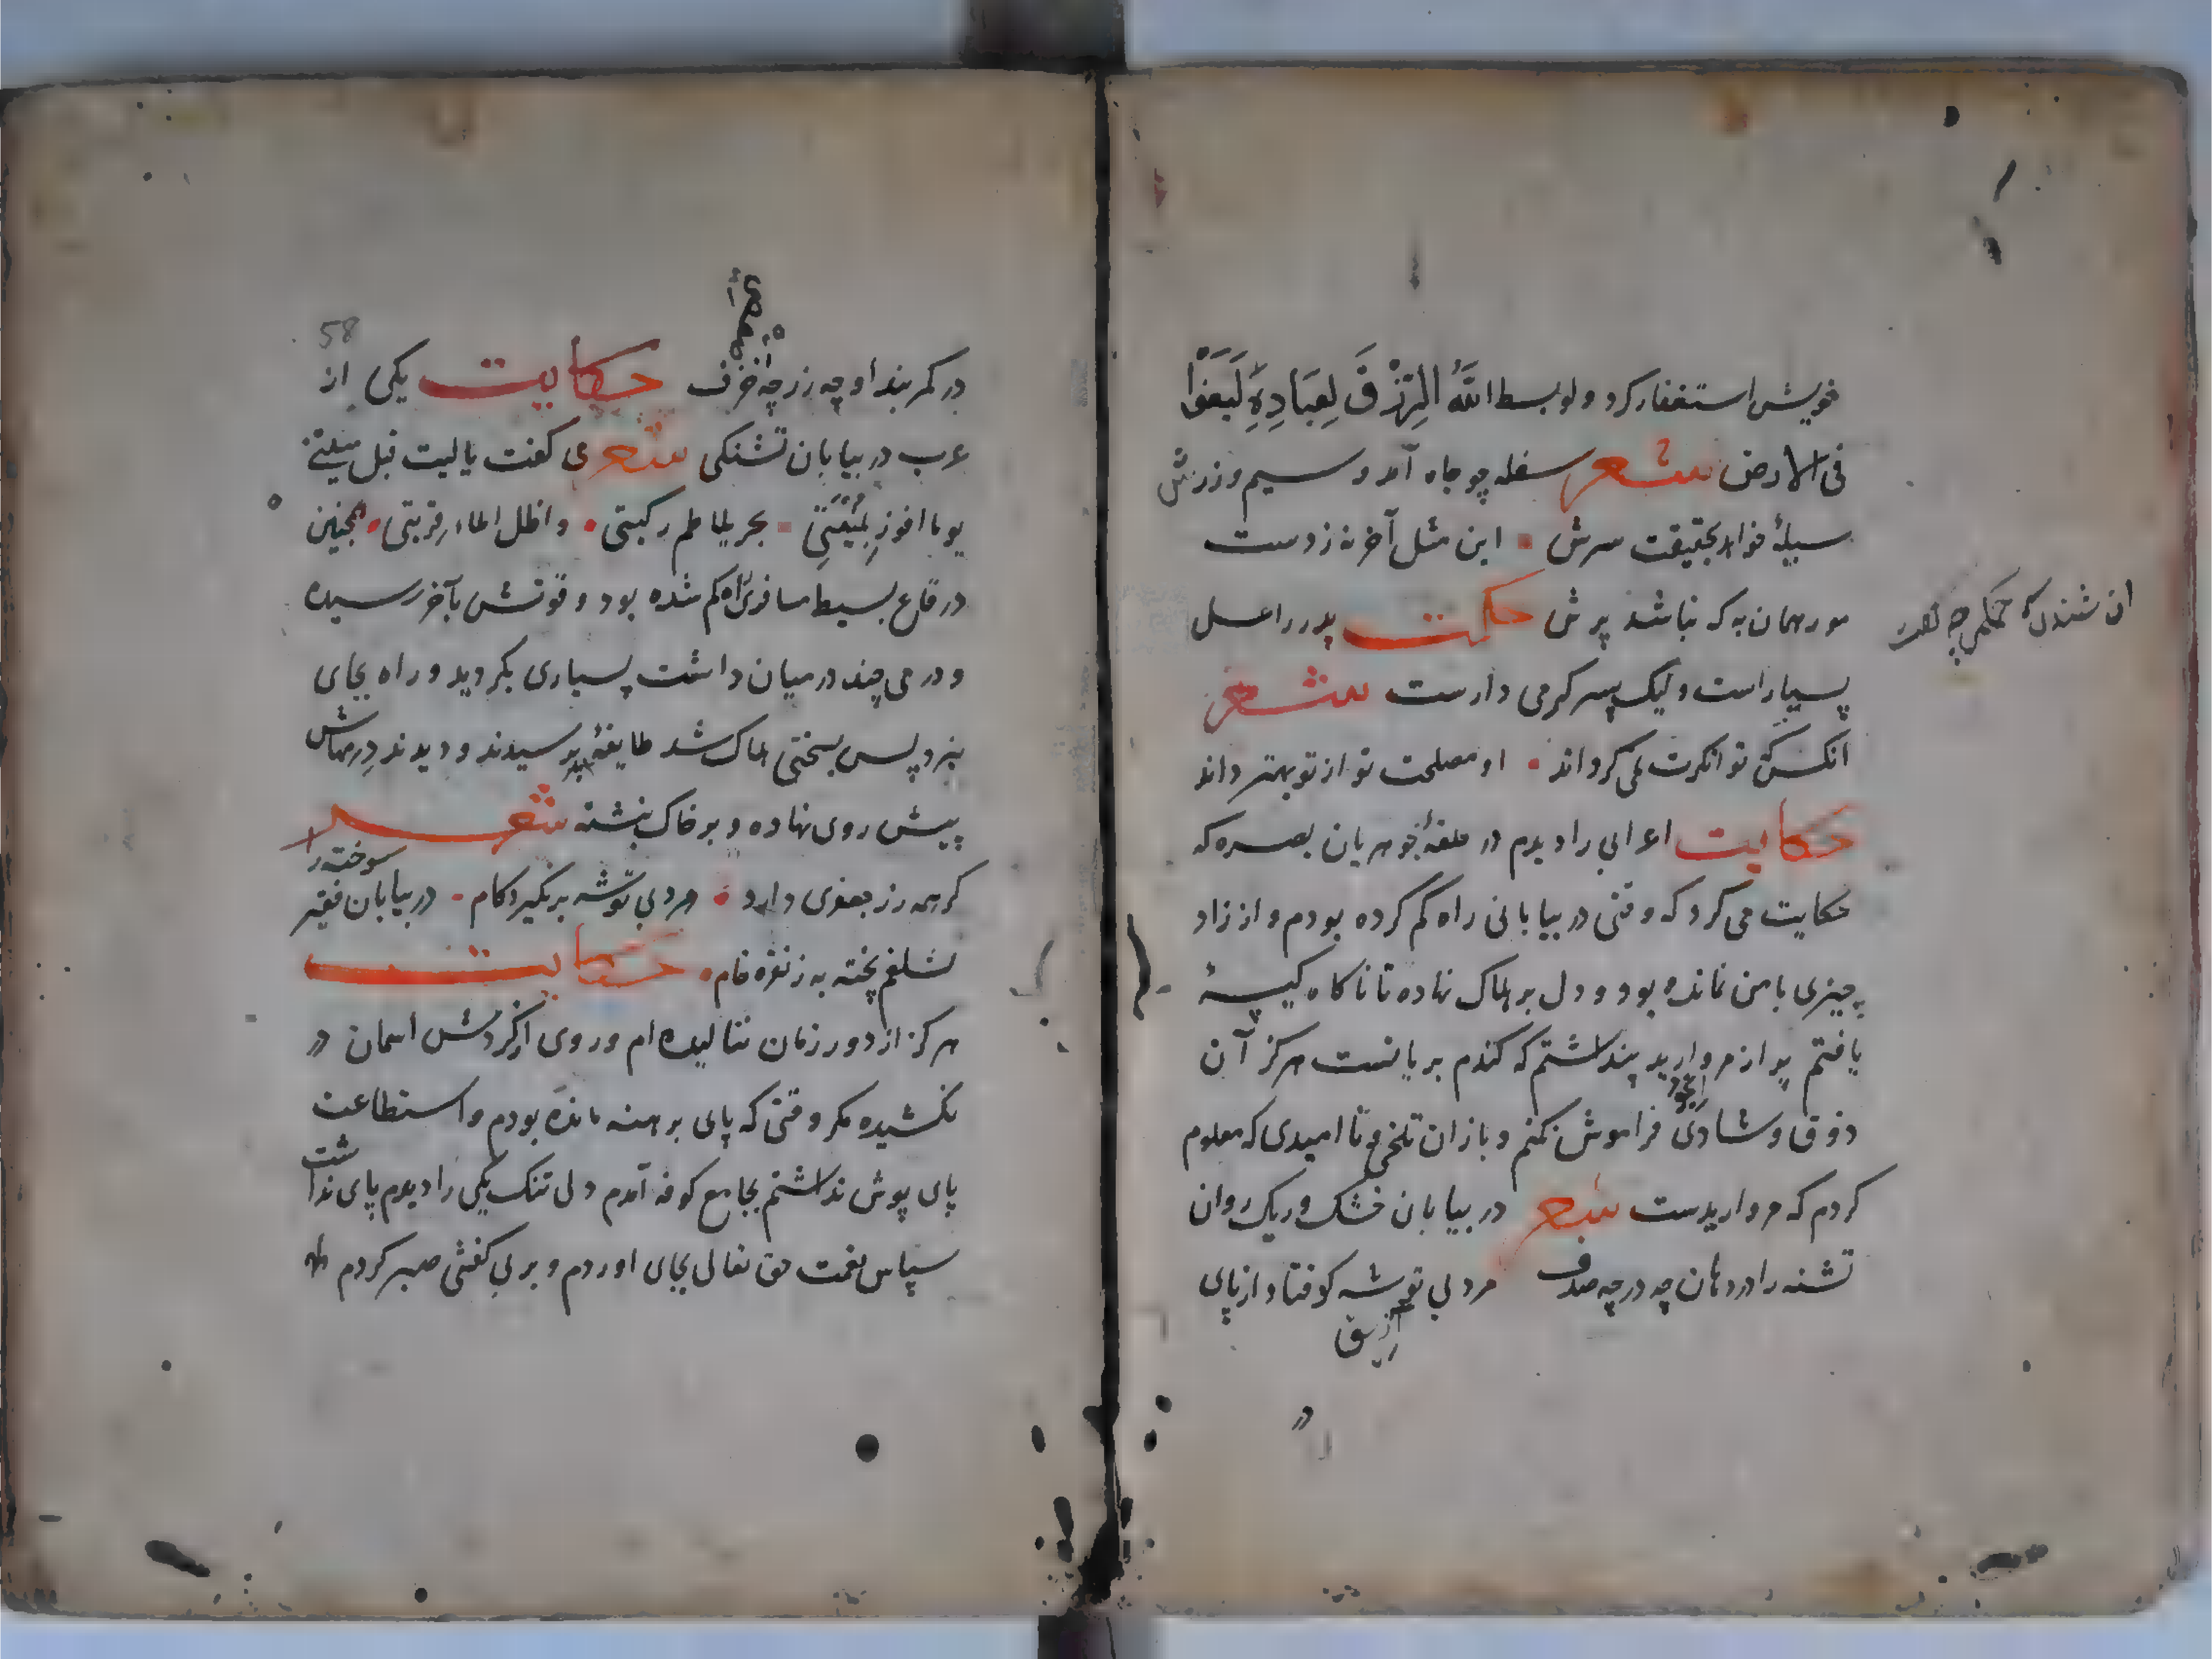 خویش استغفار کرد و لو بسط اللَّهُ الرِّزْقَ لِعِبَادِهِ لَبَغَوْا
فی الارض شعر سفله چو جاه آمد و سیم و زرش
سیلئ خواهد بحقیقت سرش • این مثل آخر نه زدست
مور همان به که نباشد پرش حکمت پدر را عسل
بسیار است ولیک پسر گرمی دارست شعر
انکس که توانکرت نمی کرداند • او مصلحت تو از تو بهتر داند
حکایت اعرابی را دیدم در حلقهٔ جوهریان بصره که
حکایت می کرد که وقتی در بیابانی راه کم کرده بودم و از زاد
چیزی با من نمانده بود و دل بر هلاک نهاده تا ناکاه کیسهٔ
یافتم پر از مروارید پنداشتم که کندم بریانست هرکز آن
ذوق و شادی فراموش نکنم و باز ان تلخی و نا امیدی که معلوم
کردم که مرواریدست شعر در بیابان خشک و ریک روان
تشنه را در دهان چه در چه صدف مرد بی توشه کو فتاد از پای
در کمربند او چه زر چه خزف حکایت یکی از
58
عرب در بیابان تشنکی شعر می کفت یا لیت قبل منیتی
یوما افوز بمنیتی • بحر یلاطم رکبتی • و اظل املاء قربتی • همچنین
در قاع بسیط مسافری راه کم شده بود و قوتش بآخر رسیده
و درمی چند در میان داشت بسیاری بکردید و راه بجای
نبرد پس بسختی هلاک شد طایفهٔ برسیدند و دیدند درمهاش
پیش روی نهاده و بر خاک نبشته شعر
کر همه زر جعفری دارد • مرد بی توشه برنکیرد کام • در بیابان فقیر سوخته را
شلغم پخته به ز نقره خام • حکایت
هرکز از دور زمان ننالیده ام و روی از کردش اسمان در
نکشیده مکر وقتی که پای برهنه مانده بودم و استطاعت
پای پوش نداشتم بجامع کوفه آمدم دل تنک یکی را دیدم پای نداشت
سپاس نعمت حق تعالی بجای اوردم و بر بی کفشی صبر کردم